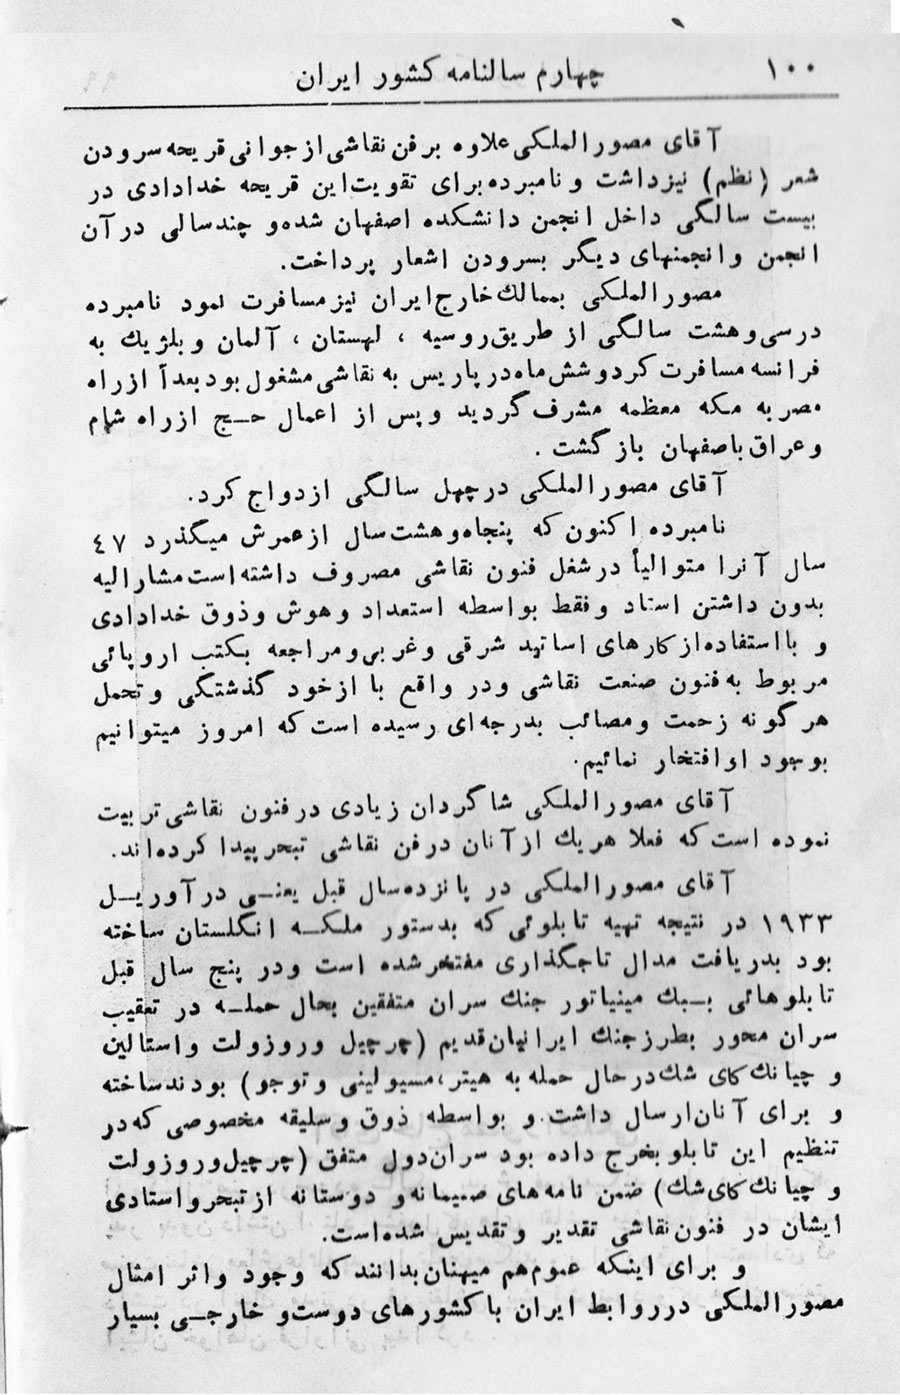 ۱۰۰ چهارم سالنامه کشور ایران
آقای مصورالملکی علاوه برفن نقاشی از جوانی قریحه سرودن
شعر (نظم) نیز داشت و نامبرده برای تقویت این قریحه خدادادی در
بیست سالگی داخل انجمن دانشکده اصفهان شده و چند سالی در آن
انجمن و انجمنهای دیگر بسرودن اشعار پرداخت.
مصورالملکی بممالك خارج ایران نیز مسافرت نمود نامبرده
در سی و هشت سالگی از طریق روسیه ، لهستان ، آلمان و بلژيك به
فرانسه مسافرت کرد و شش ماه در پاریس به نقاشی مشغول بود بعداً از راه
مصر به مکه معظمه مشرف گردید و پس از اعمال حــج از راه شام
و عراق باصفهان باز گشت .
آقای مصورالملکی در چهل سالگی ازدواج کرد.
نامبرده اکنون که پنجاه و هشت سال از عمرش میگذرد ٤٧
سال آنرا متوالیاً در شغل فنون نقاشی مصروف داشته است مشارالیه
بدون داشتن استاد و فقط بواسطه استعداد و هوش و ذوق خدادادی
و با استفاده از کارهای اساتید شرقی و غربی و مراجعه بکتب اروپائی
مربوط به فنون صنعت نقاشی و در واقع با از خود گذشتگی و تحمل
هر گونه زحمت و مصائب بدرجه‌ای رسیده است که امروز میتوانیم
بوجود او افتخار نمائیم.
آقای مصورالملکی شاگردان زیادی در فنون نقاشی تربیت
نموده است که فعلا هر يك از آنان در فن نقاشی تبحر پیدا کرده‌اند.
آقای مصورالملکی در پانزده سال قبل یعنــی در آوریــل
۱۹۳۳ در نتیجه تهیه تابلوئی که بدستور ملکــه انگلستان ساخته
بود بدریافت مدال تاجگذاری مفتخر شده است و در پنج سال قبل
تابلوهائی بــبك مینیاتور جنك سران متفقین بحال حملــه در تعقیب
سران محور بطرز جنك ایرانیان قدیم (چرچیل و روزولت و استالین
و چیانك کای شك در حال حمله به هیتر، مسیولینی و توجو) بودند ساخته
و برای آنان ارسال داشت و بواسطه ذوق و سلیقه مخصوصی که در
تنظیم این تابلو بخرج داده بود سران دول متفق (چرچیل و روزولت
و چیانك کای شك) ضمن نامه های صمیمانه و دوستانه از تبحر و استادی
ایشان در فنون نقاشی تقدیر و تقدیس شده است.
و برای اینکه عموم هم میهنان بدانند که وجود و اثر امثال
مصورالملکی در روابط ایران با کشورهای دوست و خارجــی بسیار